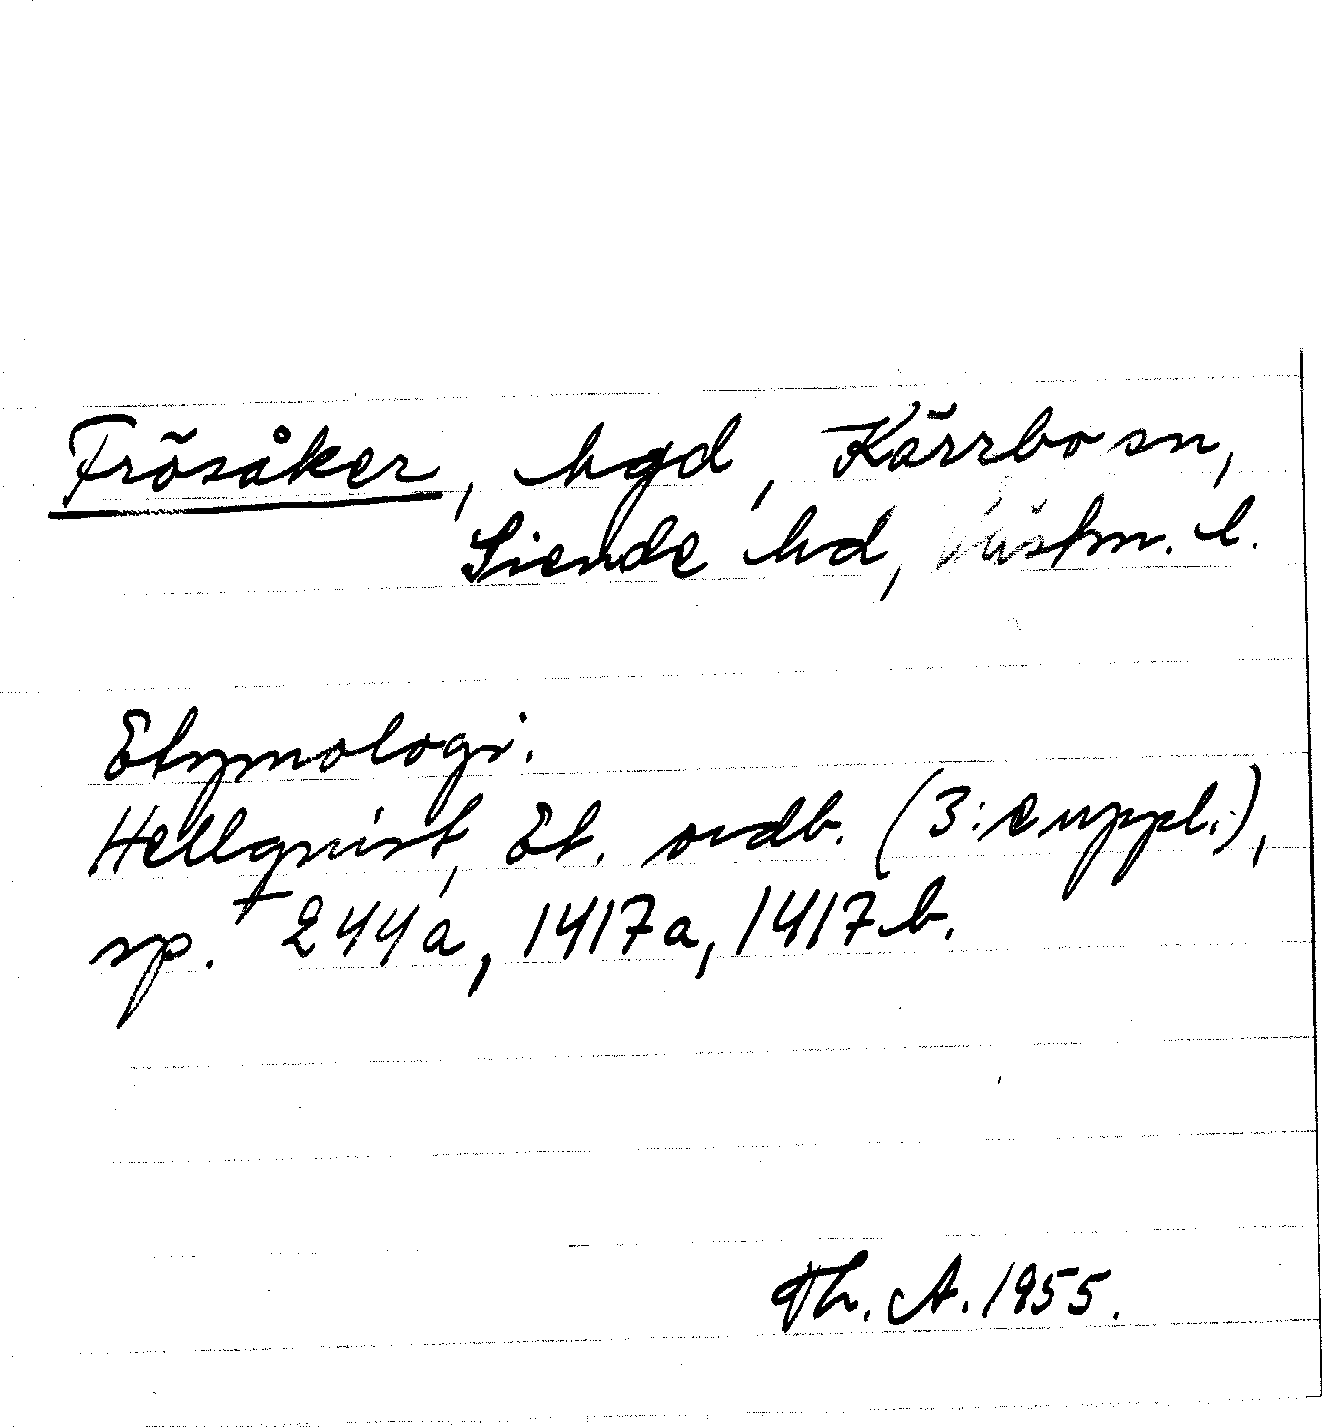 Frösåker, hgd, Kärrbo sn,
Siende hd, Västm. l.
Etymologi.
Hellquist, Et. ordb. (3: suppl.),
sp. 244a, 1417a, 1417b.
Th. A. 1955.